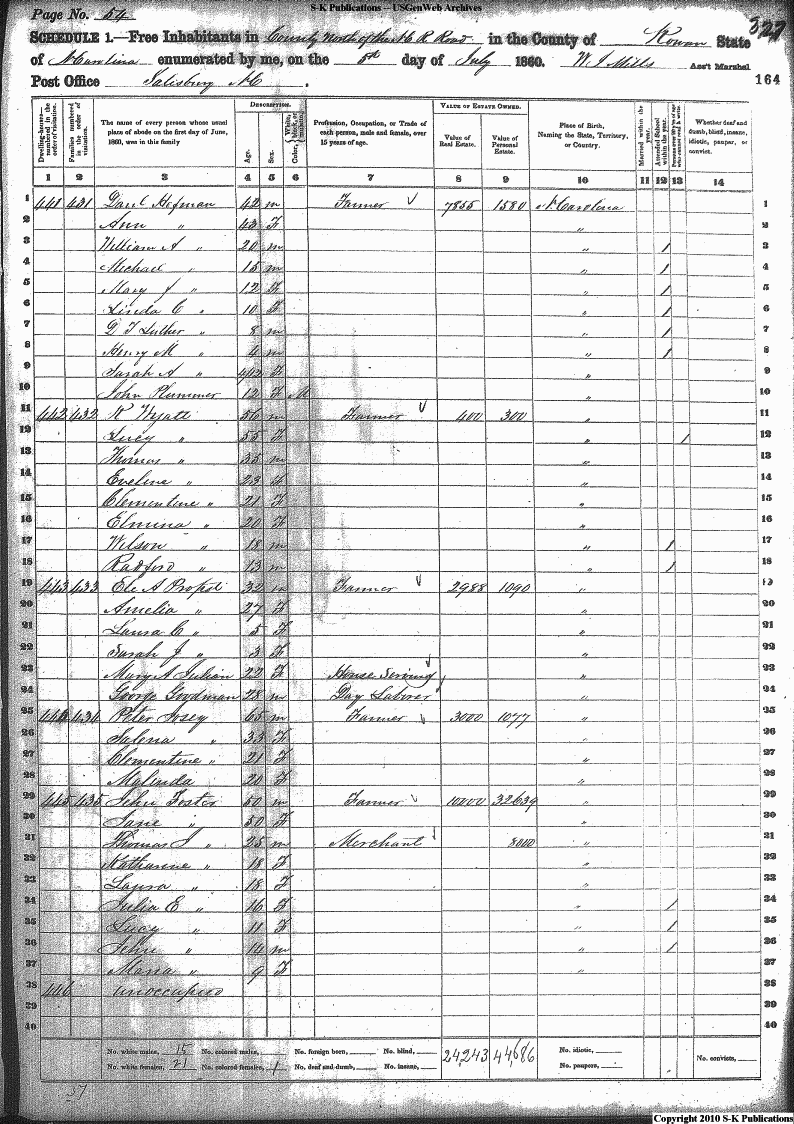 S-K Publications – USGenWeb Archives
Page No. 54
327
SCHEDULE 1.—Free Inhabitants in County North of the R Road in the County of Rowan State
of N Carolina enumerated by me, on the 5th day of July 1860. W. J. Mills Ass't Marshal
Post Office Salisbury N C.
164
Dwelling-houses numbered in the order of visitation.
Families numbered in the order of visitation.
The name of every person whose usual place of abode on the first day of June, 1860, was in this family
DESCRIPTION.
Age.
Sex.
Color, White, black, or mulatto.
Profession, Occupation, or Trade of each person, male and female, over 15 years of age.
VALUE OF ESTATE OWNED.
Value of Real Estate.
Value of Personal Estate.
Place of Birth, Naming the State, Territory, or Country.
Married within the year.
Attended School within the year.
Persons over 20 y'rs of age who cannot read & write.
Whether deaf and dumb, blind, insane, idiotic, pauper, or convict.
1 2 3 4 5 6 7 8 9 10 11 12 13 14
1 441 431 Danl Hofman 42 m Farmer √ 7855 1580 N Carolina 1
2 Ann " 43 F " 2
3 William A " 20 m " / 3
4 Michael " 15 m " / 4
5 Mary J " 12 F " / 5
6 Linda C " 10 F " / 6
7 D J Luther " 8 m " / 7
8 Henry M " 4 m " / 8
9 Sarah A " F " 9
10 John Plummer 12 F M " 10
11 442 432 Wyatt 56 m Farmer √ 400 300 " 11
12 Lucy " 55 F " / 12
13 Thomas " 35 m " 13
14 Eveline " 23 F " 14
15 Clementine " 21 F " 15
16 Elmina " 20 F " 16
17 Wilson " 18 m " / 17
18 Radford " 13 m " / 18
19 443 433 Eli A Propst 32 m Farmer √ 2988 1090 " 19
20 Amelia " 27 F " 20
21 Laura C " 5 F " 21
22 Sarah J " 3 F " 22
23 Mary A Julian 22 F House Serving √ " 23
24 George Goodman 28 m Day Laborer " 24
25 444 434 Peter Josey 65 m Farmer √ 3000 1077 " 25
26 Salena " 33 F " 26
27 Clementine " 21 F " 27
28 Malinda 20 F " 28
29 445 435 John Foster 50 m Farmer √ 10000 32639 " 29
30 Jane " 50 F " 30
31 Thomas J " 25 m Merchant 8000 " 31
32 Katharine " 18 F " 32
33 Laura " 18 F " 33
34 Julia E " 16 F " / 34
35 Lucy " 11 F " / 35
36 John " 14 m " / 36
37 Maria " 9 F " 37
38 446 unoccupied 38
39 39
40 40
No. white males, 15 No. colored males, No. foreign born, No. blind, 24,243 44,686 No. idiotic, No. convicts,
No. white females, 21 No. colored females, 1 No. deaf and dumb, No. insane, No. paupers,
37
Copyright 2010 S-K Publications